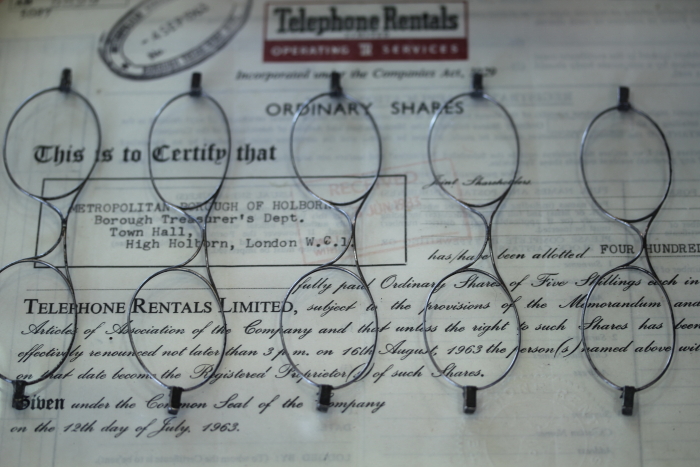 Telephone Rentals
OPERATING SERVICES
Incorporated under the Companies Act, 1929
ORDINARY SHARES
This is to Certify that
Joint Shareholders
METROPOLITAN BOROUGH OF HOLBORN
Borough Treasurer's Dept.
Town Hall,
High Holborn, London W.C.1.
has/have been allotted FOUR HUNDRED
fully paid Ordinary Shares of Five Shillings each in
TELEPHONE RENTALS LIMITED, subject to the provisions of the Memorandum and
Articles of Association of the Company and that unless the right to such Shares has been
effectively renounced not later than 3 p.m. on 16th August, 1963 the person(s) named above will
on that date become the Registered Proprietor(s) of such Shares.
Given under the Common Seal of the Company
on the 12th day of July, 1963.